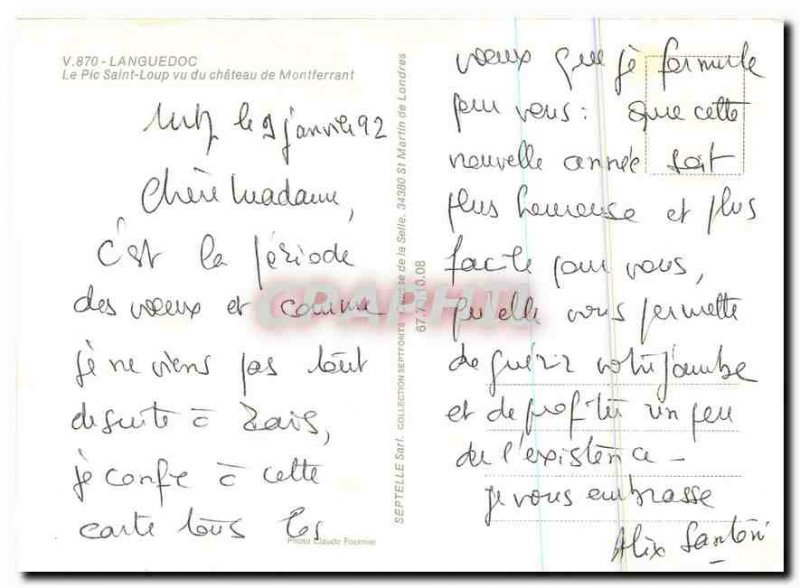 V.870 - LANGUEDOC
Le Pic Saint-Loup vu du château de Montferrant
le 9 janvier 92
Chère Madame,
C'est la période
des voeux et comme
je ne viens pas tout
de suite à
je confie à cette
carte tous les
Photo Claude Fournier
SEPTELLE Sarl. COLLECTION SEPTFONTS de la Selle. 34380 St Martin de Londres
67.7 10.08
CPAPHIL
voeux que je formule
pour vous : que cette
nouvelle année soit
plus heureuse et plus
facile pour vous,
qu'elle vous permette
de guérir votre jambe
et de profiter un peu
de l'existence -
je vous embrasse
Alix Santoni